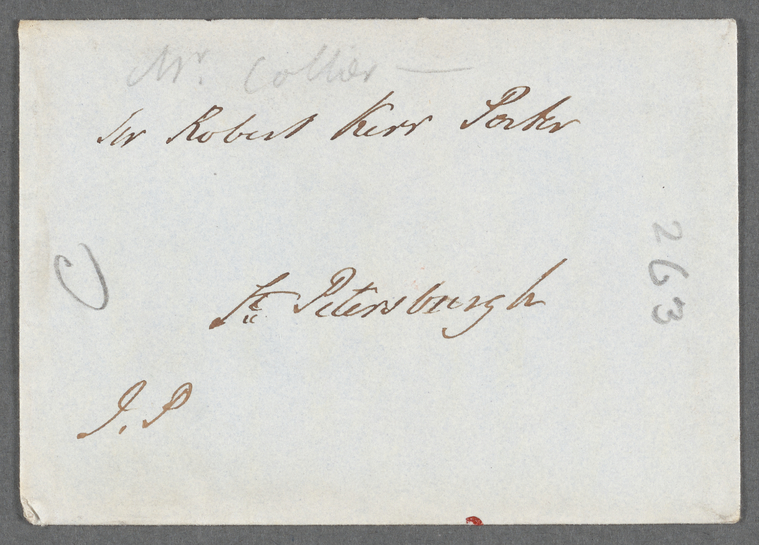 Mr. Collier —
Sir Robert Kerr Porter
St. Petersburgh
J. P
263